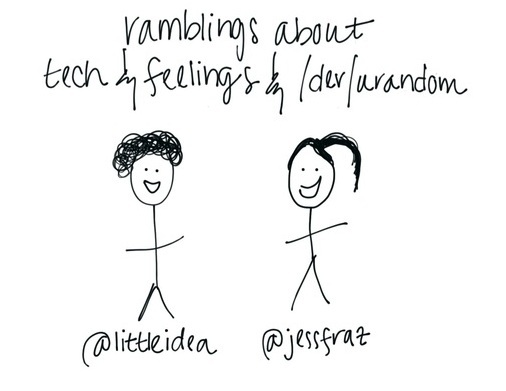 ramblings about
tech & feelings & /dev/urandom
@littleidea @jessfraz